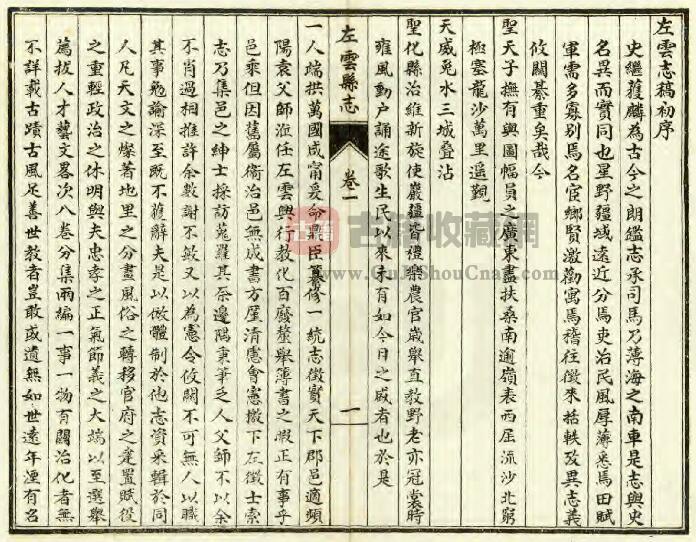 左雲志稿初序
史繼獲麟為古今之朗鑑志承司馬乃薄海之南車是志與史
名異而實同也星野疆域遠近分焉吏治民風厚薄悉焉田賦
軍需多寡別焉名宦鄉賢激勸寓焉稽往徵來括軼攷異志義
攸關綦重矣哉今
聖天子撫有輿圖幅員之廣東盡扶桑南逾嶺表西屆流沙北窮
極塞龍沙萬里遥覲
天威兎水三城疊沾
聖化縣治維新旋使巖疆皆禮樂農官歲舉直教野老亦冠裳時
雍風動户誦途歌生民以來未有如今日之盛者也於是
左雲縣志
卷一
一
一人端拱萬國咸甯爰命
臣纂修一統志徵實天下郡邑適頻
陽袁父師涖任左雲興行教化百廢釐舉簿書之暇正有事乎
邑乘但因舊屬衞治邑無成書方厪清慮會憲檄下左徵士索
志乃集邑之紳士採訪蒐羅其奈邊隅秉筆乏人父師不以余
不肖過相推許余數謝不敏又以為憲令攸關不可無人以職
其事勉諭深至既不獲辭夫是以倣體制於他志資采輯於同
人凡天文之燦著地里之分畫風俗之轉移官府之建置賦役
之重輕政治之休明與夫忠孝之正氣節義之大端以至選舉
薦拔人才藝文畧次八卷分集兩編一事一物有關治化者無
不詳載古蹟古風足善世教者豈敢或遺無如世遠年湮有名
古籍收藏網
www.GuJiShouCang.com